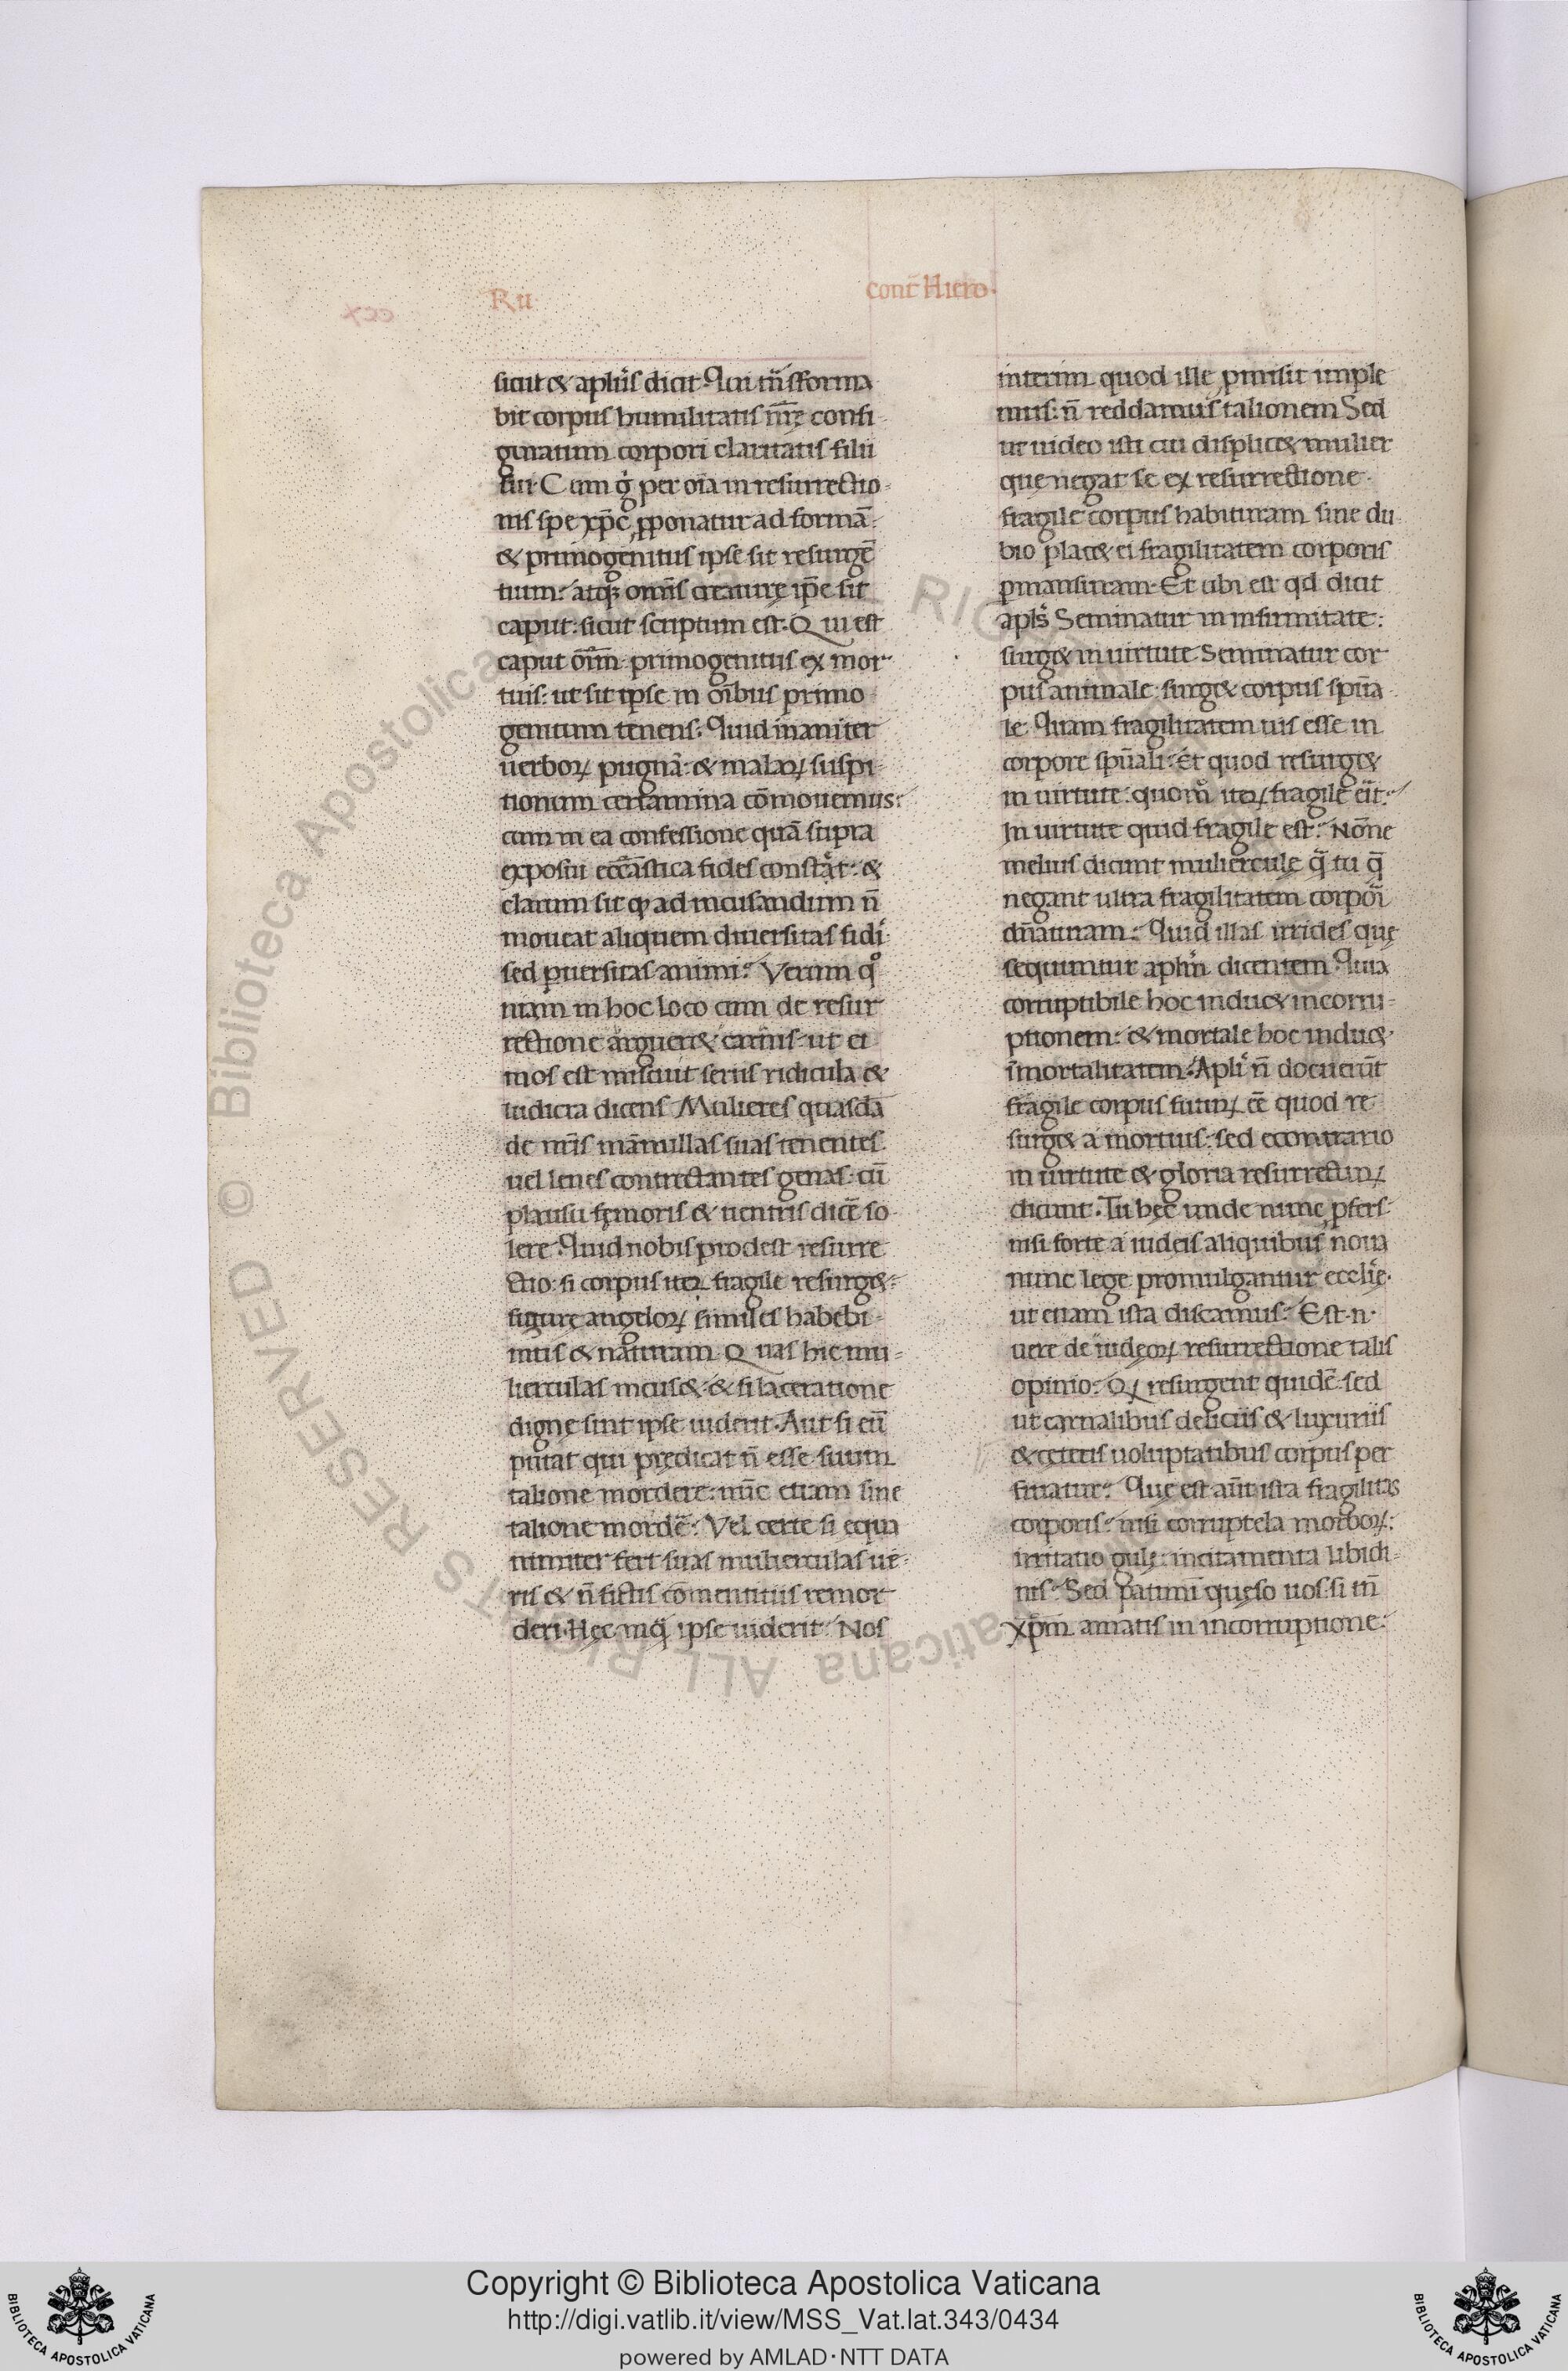 Ru
cont̄ Hiero.
sicut & apl̄us dicit. Qui tn̄sforma
bit corpus humilitatis nr̄ę confi-
guratum corpori claritatis filii
sui. Cum g̊ per oīa in resurrectio-
nis spe xp̄c ꝓponatur ad formā:
& primogenitus ipse sit resurgē
tium: atqꝫ omīs creaturę ip̄e sit
caput: sicut scriptum est. Qui est
caput oīm: primogenitus ex mor
tuis: ut sit ipse in oībus primo
genitum tenens: Quid inaniter
uerboꝝ pugnā: & malaꝝ suspi
tionum certamina cōmouemus:
cum in ea confessione quā supra
exposui eccl̄astica fides constat: &
clarum sit ꝙ ad incusandum n̄
moueat aliquem diuersitas fidī
sed ꝑuersitas animi: Verum qo
niam in hoc loco cum de resur
rectione arguer& carnis: ut ei
mos est miscuit seriis ridicula &
iudicia dicens Mulieres quasdā
de nr̄is māmillas suas tenentes
uel lenes contrectantes genas: cū
plausu femoris & uentris dicē so
lere. Quid nobis prodest resurre
ctio: si corpus iteꝝ fragile resurg&:
figurę angeloꝝ similes habebi-
mus & naturam. Quas hic mu-
lierculas incus&: & si laceratione
dignę sint ipse uiderit. Aut si eū
putat qui prędicat n̄ esse suum
talione mordere: nūc etiam sine
talione mordē: Vel certe si equa
nimiter fert suas mulierculas ue-
ris & n̄ fictis cōmentitiis remor
deri. Hęc inq̄ ipse uiderit: Nos
interim quod ille ꝓmisit imple
mus: n̄ reddamus talionem Sed
ut uideo isti cui displic& mulier
quę negat se ex resurrectione
fragile corpus habituram sine du
bio plac& ei fragilitatem corporis
ꝑmansuram. Et ubi est qd dicit
apl̄s Seminatur in infirmitate:
surg& in uirtute Seminatur cor
pus animale: surg& corpus spūa
le. Quam fragilitatem uis esse in
corpore spūali: Et quod resurg&
in uirtute: quom̊ iteꝝ fragile erit:
In uirtute quid fragile est: Nōne
melius dicunt mulierculę q̄ tu q̄
negant ultra fragilitatem corpori
dn̄aturam: Quid illas irrides quę
sequuntur apl̄m dicentem Quia
corruptibile hoc indu& incorru-
ptionem: & mortale hoc indu&
īmortalitatem. Apl̄i n̄ docuerūt
fragile corpus futuꝝ eē quod re
surg& a mortuis: sed econtrario
in uirtute & gloria resurrectuꝝ
dicunt. Tu hęc unde nunc ꝓfers:
nisi forte a iudeis aliquibus noua
nunc lege promulgantur eccl̄ię.
ut etiam ista discamus: Est .n.
uere de iudęoꝝ resurrectione talis
opinio: Qꝝ resurgent quidē: sed
ut carnalibus deliciis & luxuriis
& ceteris uoluptatibus corpus per
fruatur: Quę est aūt ista fragilitas
corporis: nisi corruptela morboꝝ:
irritatio gulę: incitamenta libidi-
nis: Sed patimi quęso uos: si tn̄
xp̄m amatis in incorruptione:
Copyright © Biblioteca Apostolica Vaticana
http://digi.vatlib.it/view/MSS_Vat.lat.343/0434
powered by AMLAD·NTT DATA